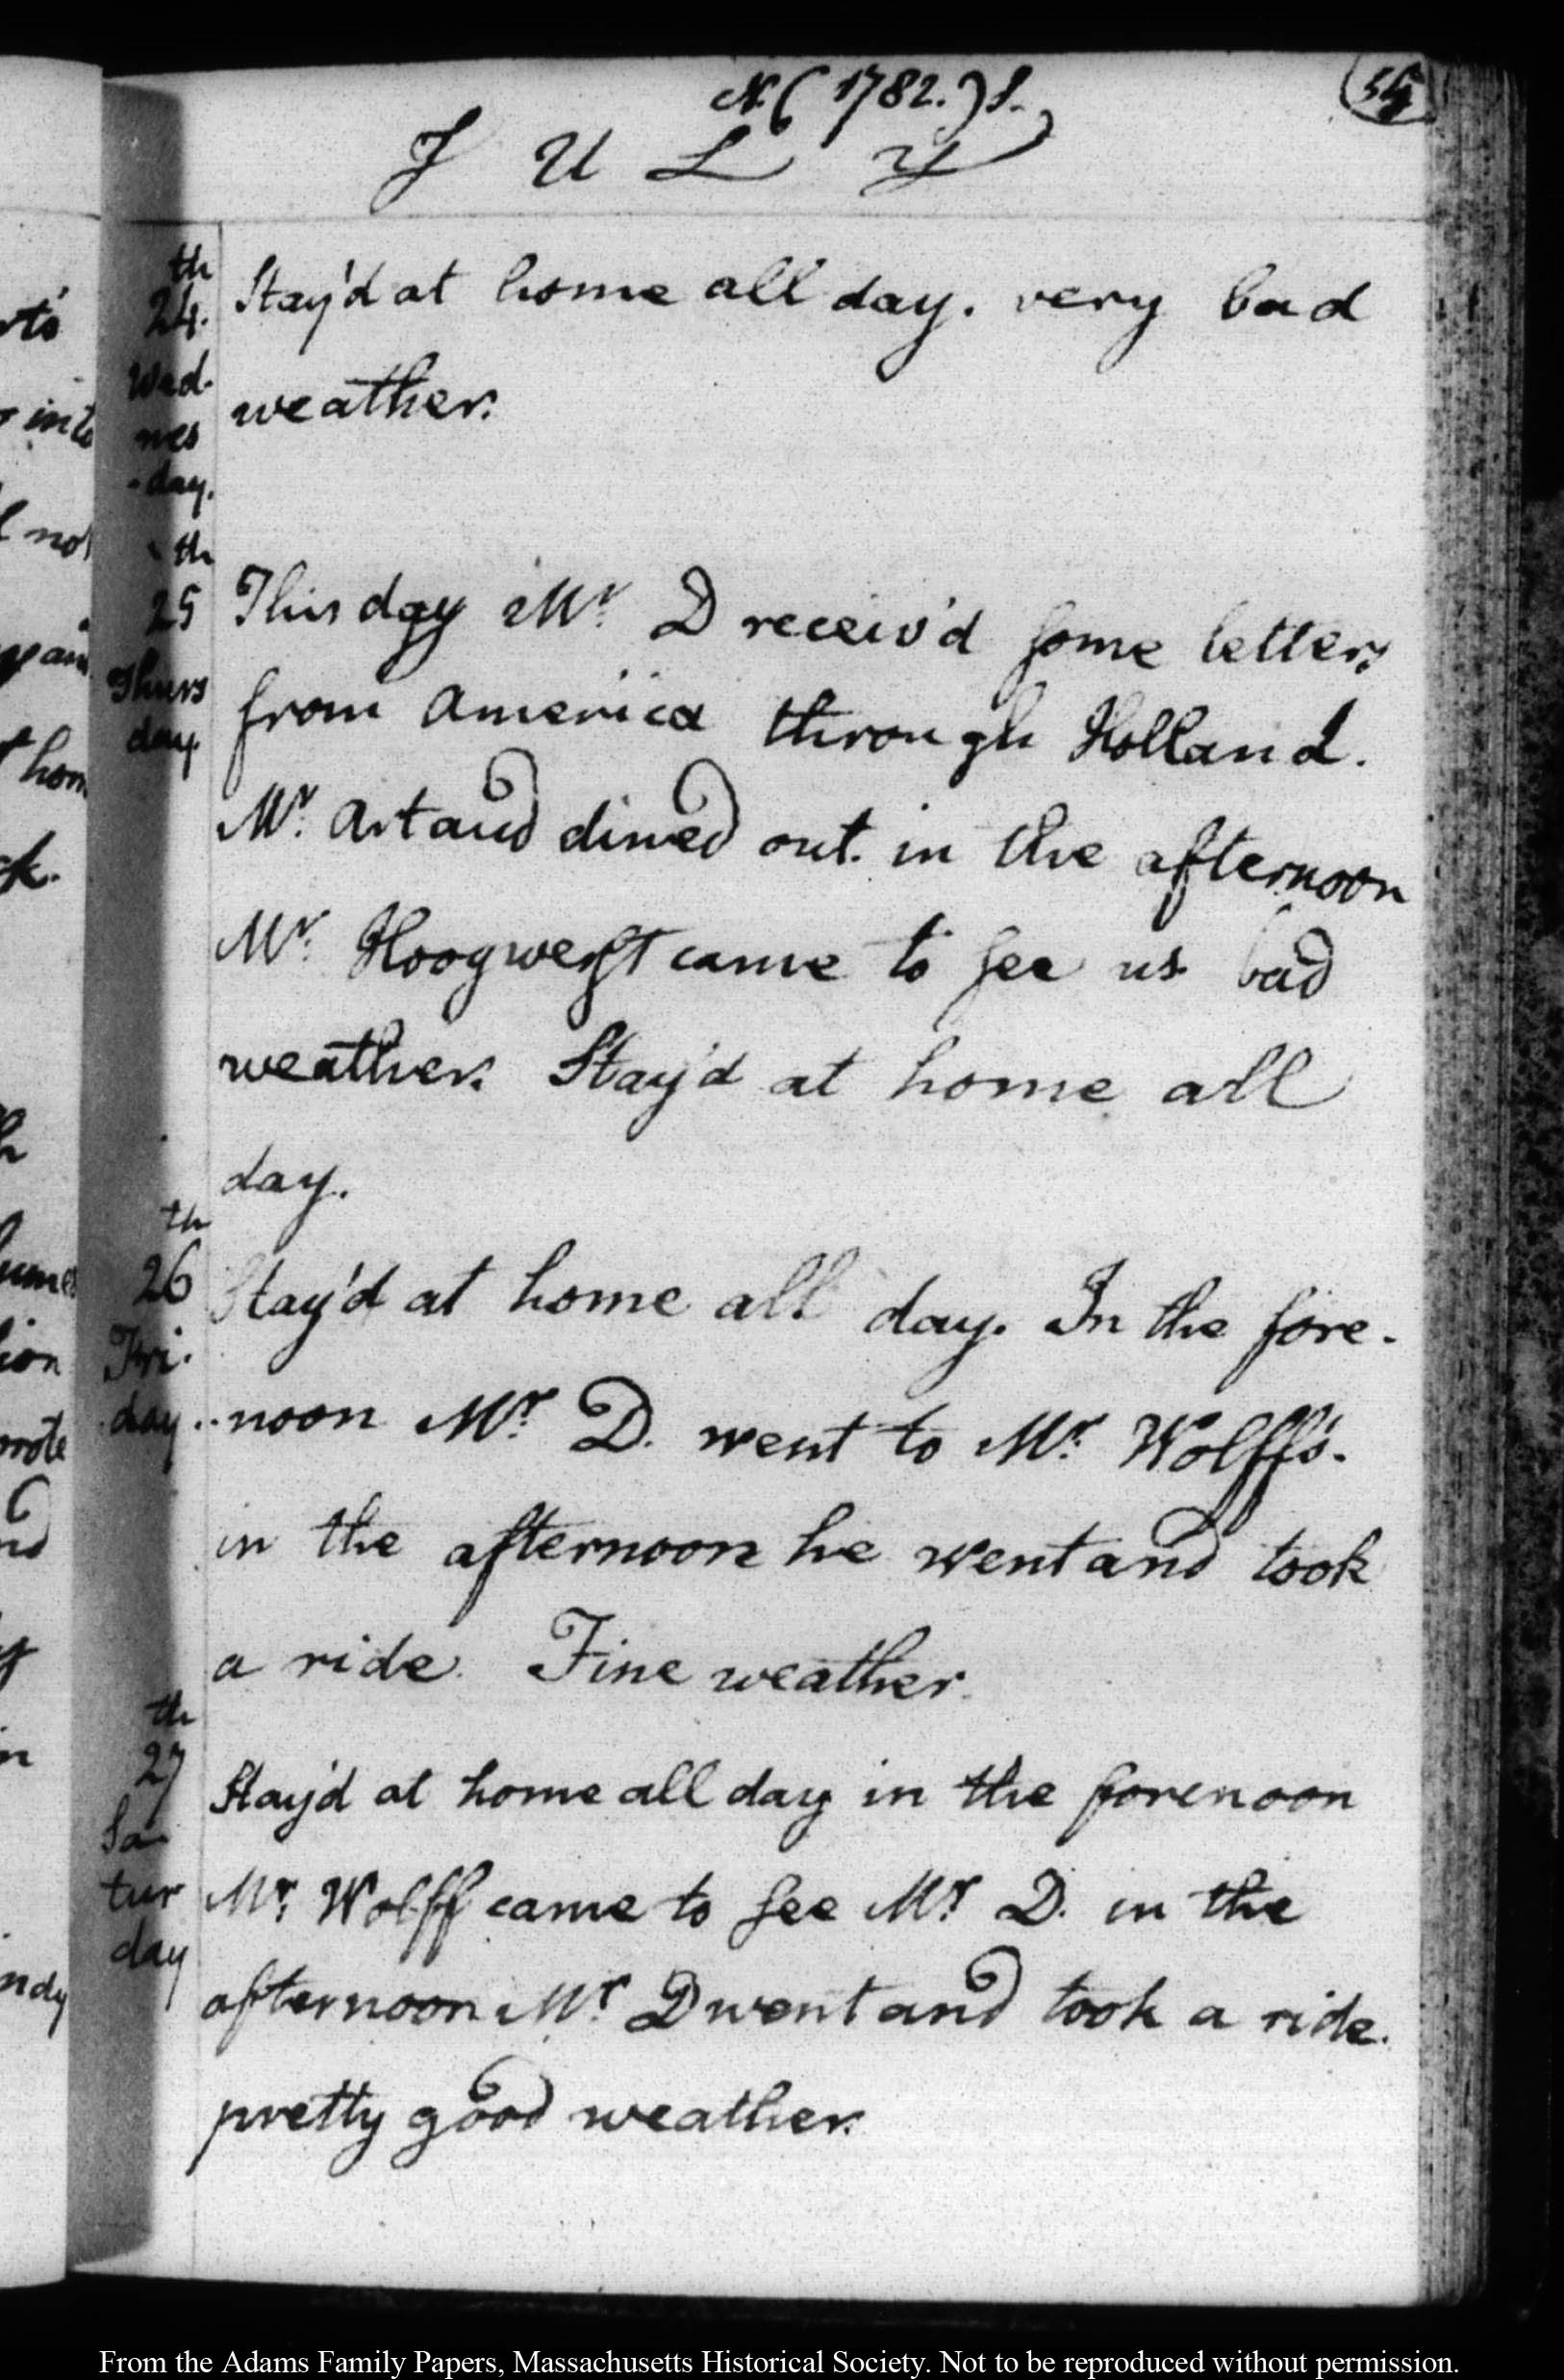 N. (1782.) S.
JULY
24.th Wednes-day. Stay'd at home all day. very bad
weather.
25th Thursday. This day Mr. D receiv'd some letters
from America through Holland.
Mr. Artaud dined out. in the afternoon
Mr. Hoogwerft came to see us bad
weather. Stay'd at home all
day.
26th Fri-day. Stay'd at home all day. In the fore-
noon Mr. D. went to Mr. Wolff's.
in the afternoon he went and took
a ride. Fine weather.
27th Saturday Stay'd at home all day in the forenoon
Mr. Wolff came to see Mr. D. in the
afternoon Mr. D went and took a ride.
pretty good weather.
From the Adams Family Papers, Massachusetts Historical Society. Not to be reproduced without permission.